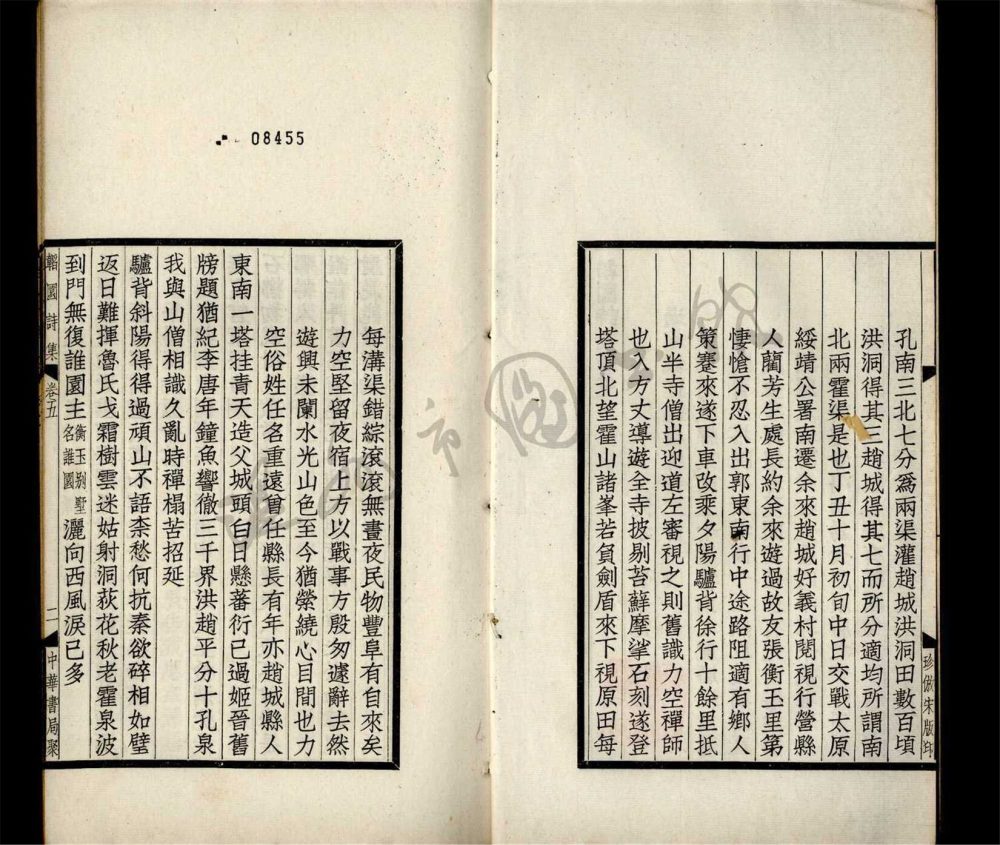 孔南三北七分爲兩渠灌趙城洪洞田數百頃
洪洞得其三趙城得其七而所分適均所謂南
北兩霍渠是也丁丑十月初旬中日交戰太原
綏靖公署南遷余來趙城好義村閱視行營縣
人藺芳生處長約余來遊過故友張衡玉里第
悽愴不忍入出郭東南行中途路阻適有鄉人
策蹇來遂下車改乘夕陽驢背徐行十餘里抵
山半寺僧出迎道左審視之則舊識力空禪師
也入方丈導遊全寺披剔苔蘚摩挲石刻遂登
塔頂北望霍山諸峯若負劍盾來下視原田每
珍倣宋版印
08455
每溝渠錯綜滾滾無晝夜民物豐阜有自來矣
力空堅留夜宿上方以戰事方殷匆遽辭去然
遊興未闌水光山色至今猶縈繞心目間也力
空俗姓任名重遠曾任縣長有年亦趙城縣人
東南一塔挂青天造父城頭白日懸蕃衍已過姬晉舊
牓題猶紀李唐年鐘魚響徹三千界洪趙平分十孔泉
我與山僧相識久亂時禪榻苦招延
驢背斜陽得得過頑山不語柰愁何抗秦欲碎相如璧
返日難揮魯氏戈霜樹雲迷姑射洞荻花秋老霍泉波
到門無復誰園主衡玉別墅名誰園灑向西風淚已多
韜園詩集 卷五 二 中華書局聚